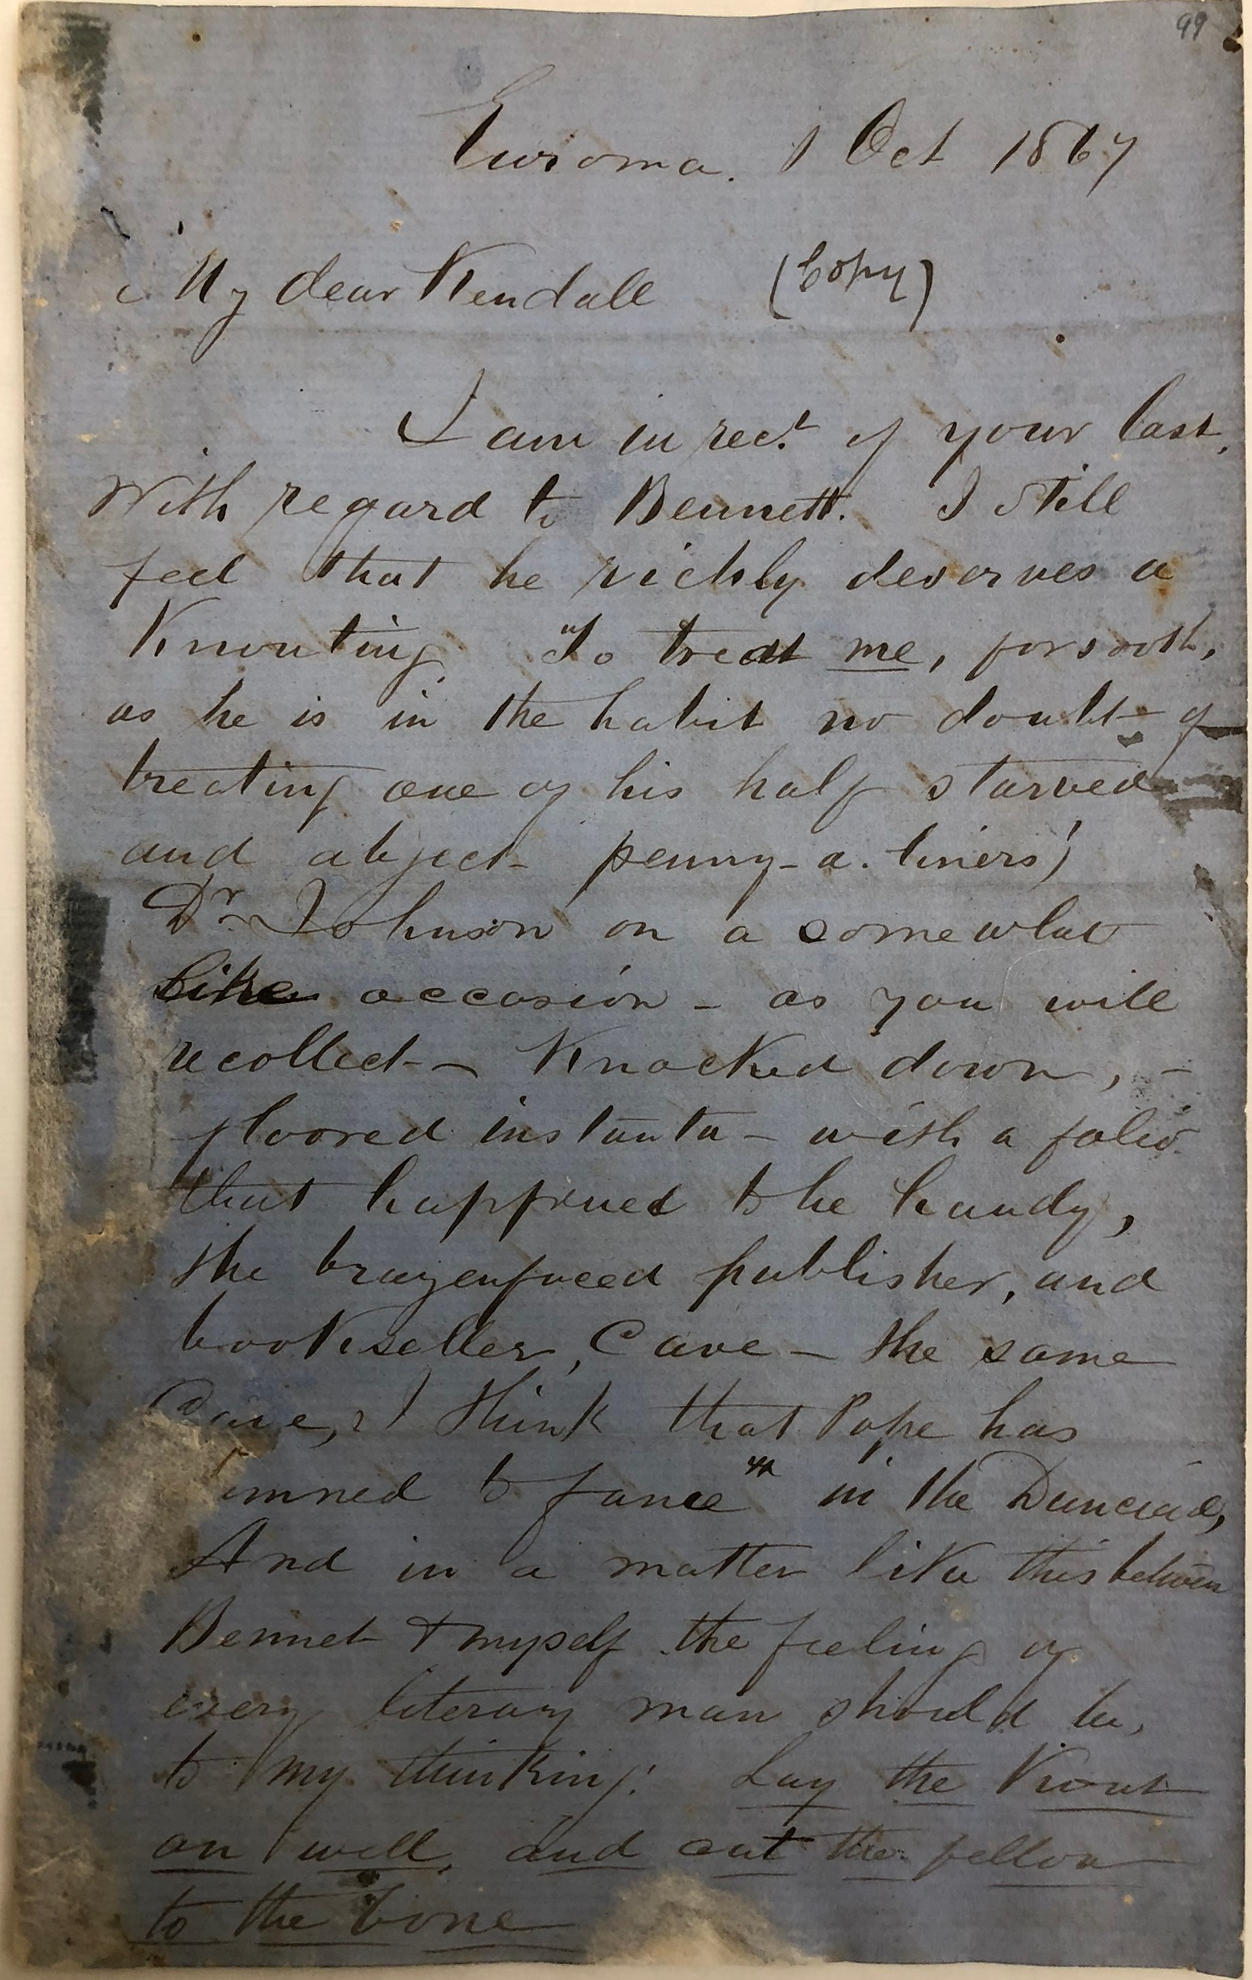 99
Euroma. 1 Oct 1867
My dear Kendall (Copy)
I am in rect. of your last.
With regard to Bennett. I still
feel that he richly deserves a
Knouting. "To treat me, forsooth,
as he is in the habit no doubt of
treating one of his half starved
and abject penny-a-liners!
Dr. Johnson on a somewhat
like occasion - as you will
recollect - Knocked down, -
floored instanta - with a folio
that happened to be handy,
the brazenfaced publisher, and
bookseller, Cave - the same
Cave, I think that Pope has
mned to fame" in the Dunciad,
And in a matter like this between
Bennet & myself the feeling of
every literary man should be,
to my thinking: Lay the Knout
on well, and cut the fellow
to the bone